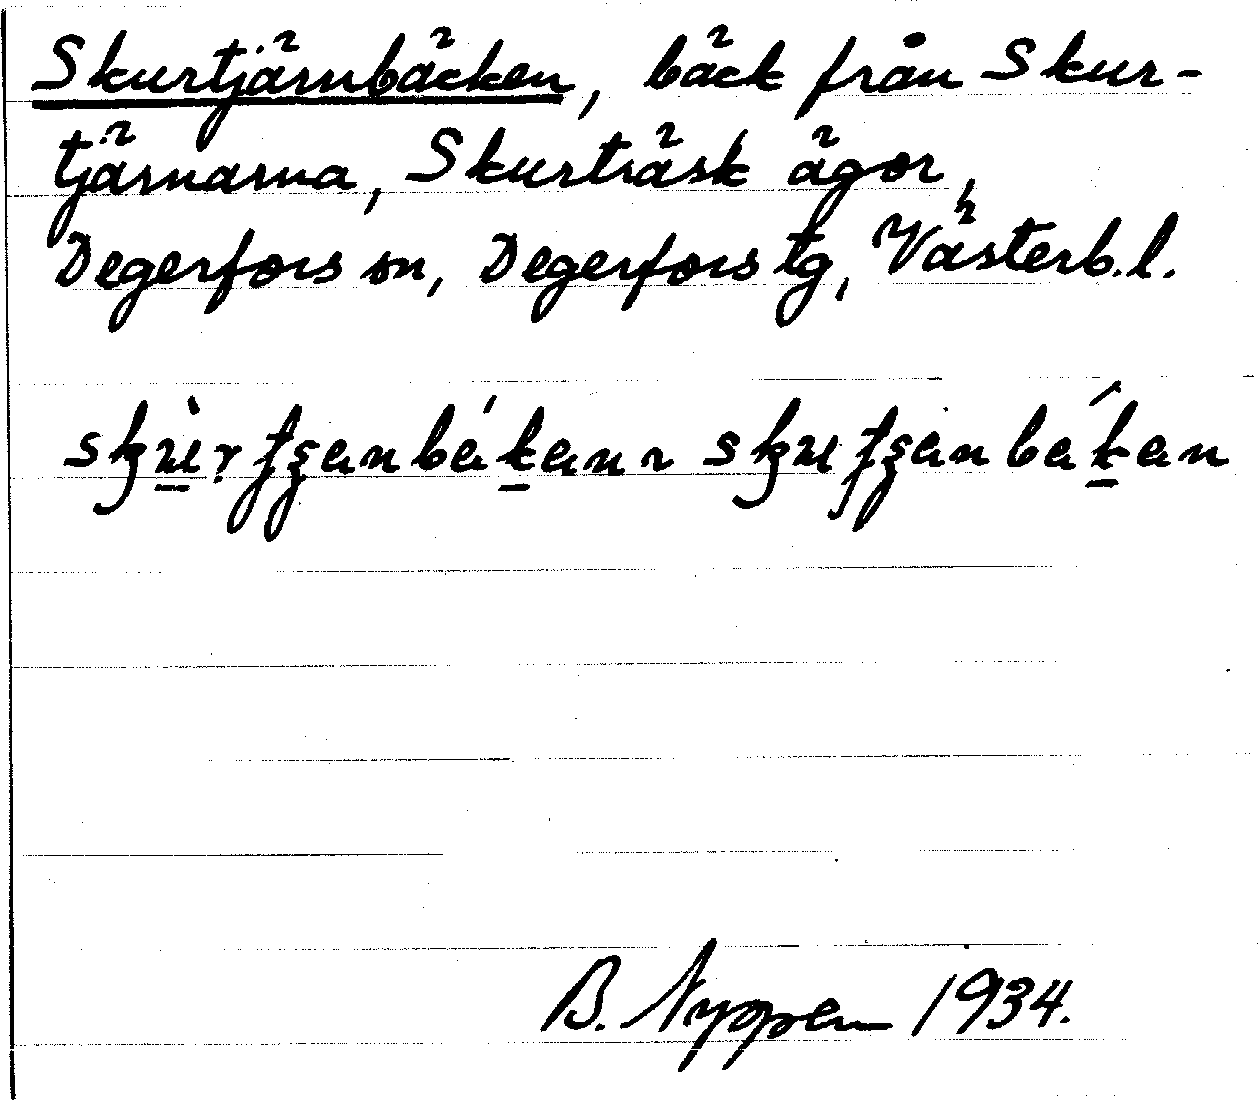 Skurtjärnbäcken, bäck från Skur-
tjärnarna, Skurträsk ägor,
Degerfors sn, Degerfors tg, Västerb.l.
B. Nyppen 1934.